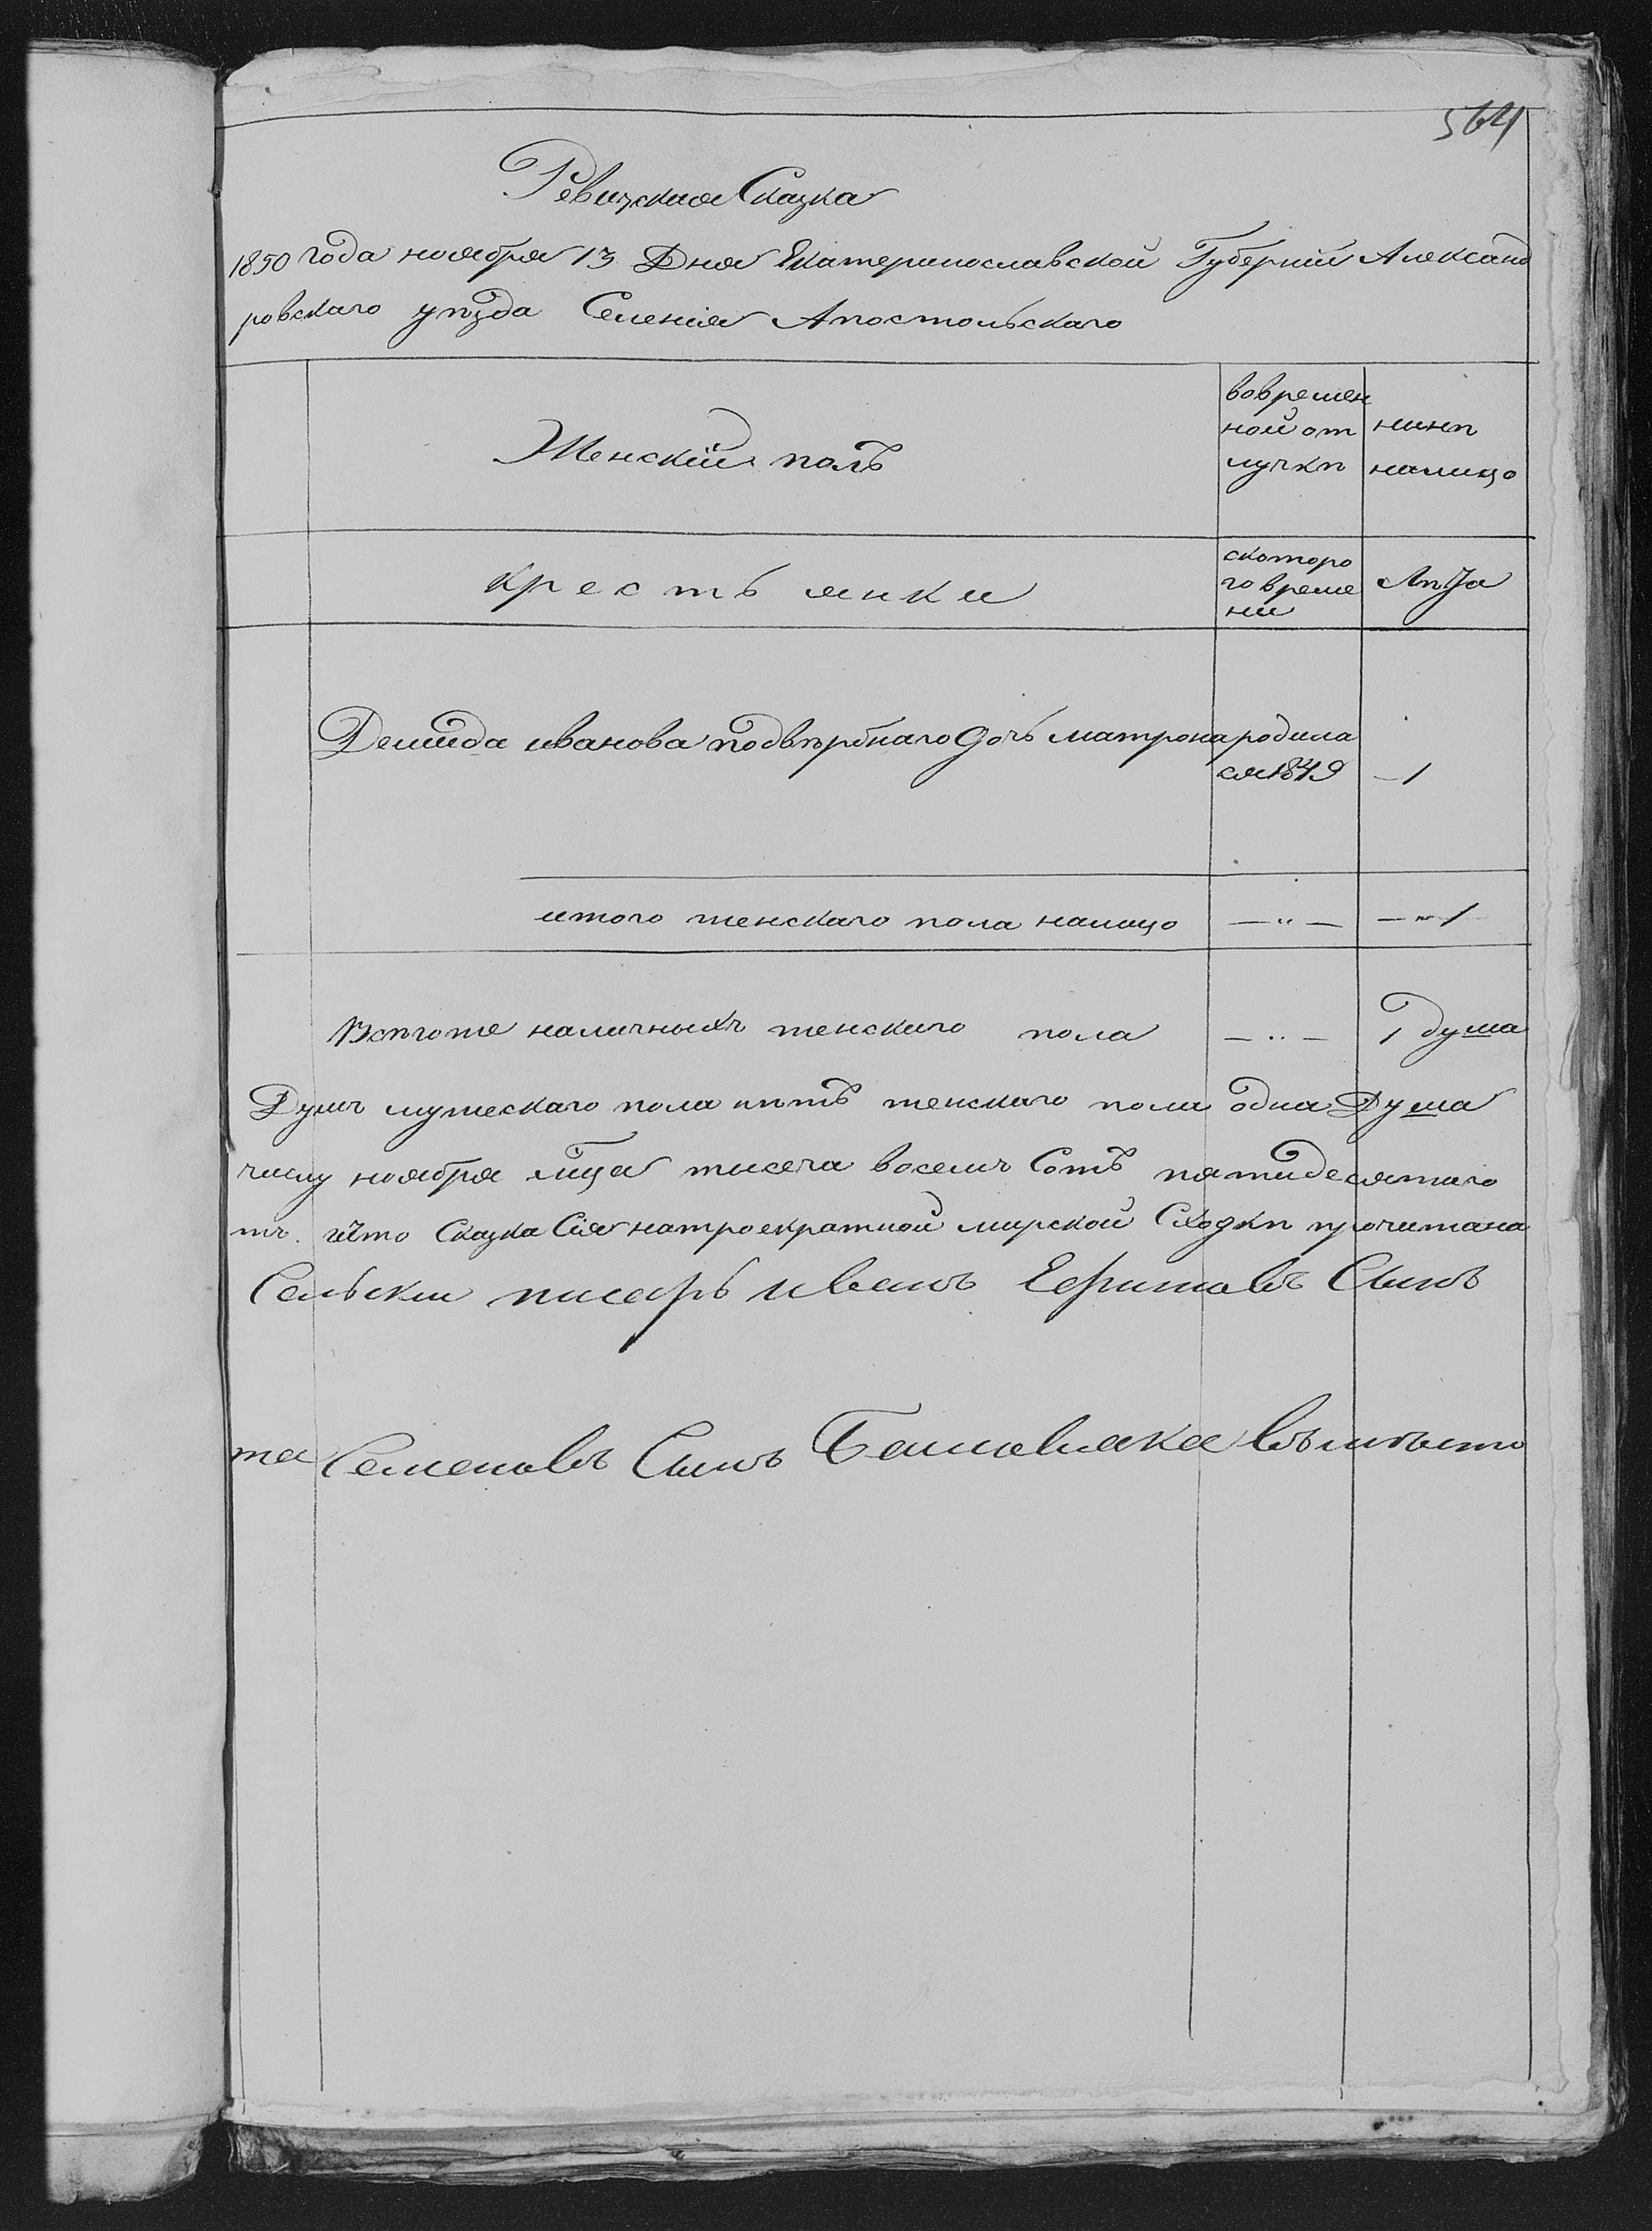 564
Ревизская Сказка
1850 года ноября 13 Дня Екатеринославской Губерніи Александ
ровскаго уѣзда Селенія Апостольскаго
Женскій полъ
вовремен
ной от
лучкѣ
нинѣ
налицо
крестьянки
скоторо
го време
ни
Лѣта
Демида иванова подвѣрбнаго дочь матрона родила
ся 1849 — 1
итого женскаго пола налицо — " — — " 1
Всѣгоже наличныхъ женскаго пола — " — 1 душа
Душъ мужескаго пола пять женскаго пола одна Душа
числу ноября мца тисеча восемъ Сотъ пятидесятаго
тъ. что Сказка Сія натроекратной мирской Сходкѣ прочитана
Сельски писарь иванъ Ефимовъ Сынъ
та Семеновъ Сынъ вместо